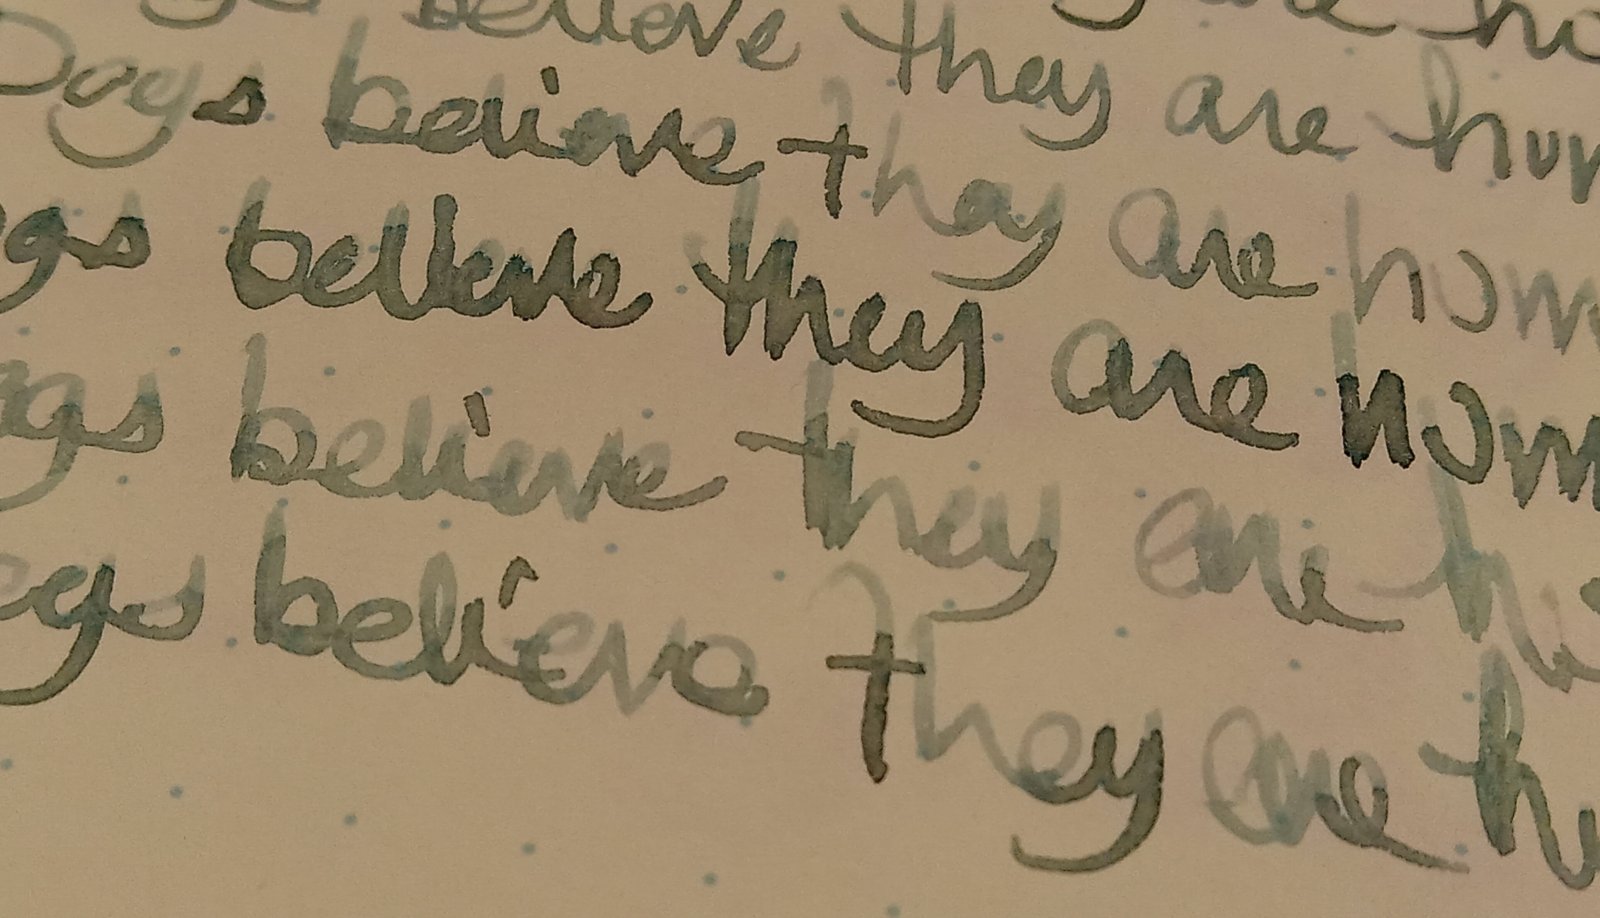 believe they are
Dogs believe they are hum
ogs believe they are hum
ogs believe they are hu
ogs believe they are hu